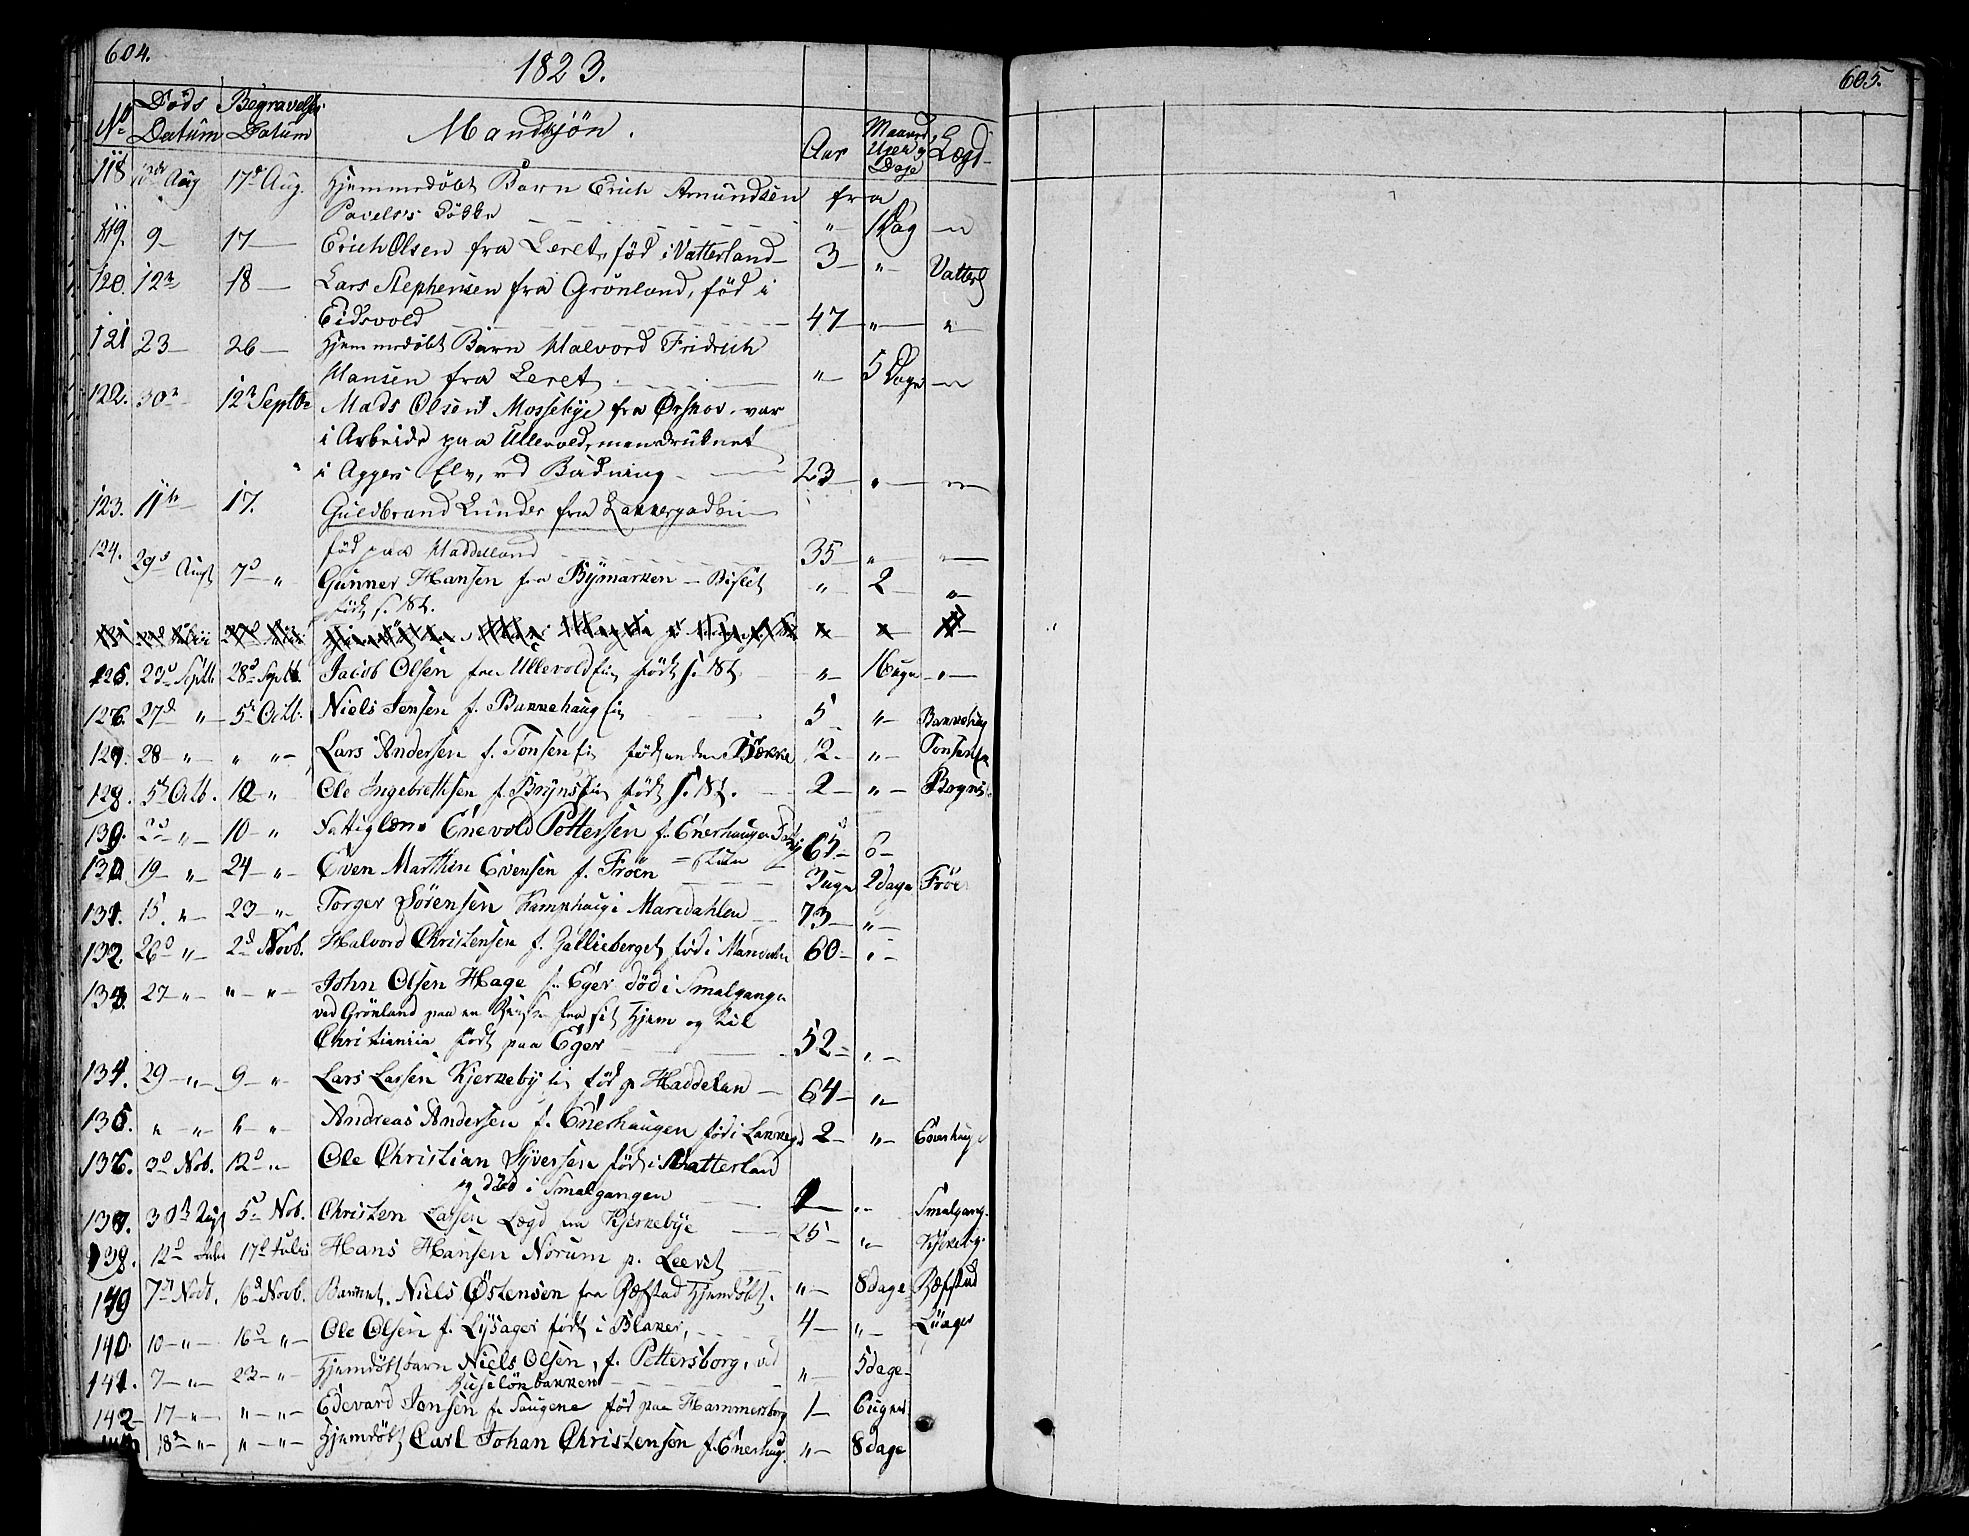 604.
1823.
No Døds Datum Begravelses Datum Mandkjøn. Aar Maaned Uger og Dage Lægd
118 Aug 17de Aug. Hjemmedøbt Barn Erich Amundsen fra
Povels Løkke " 1 Dag "
119. 9 17 Erich Olsen fra Leret, fød i Vatterland 3 " Vatterl
120. 12te 18 Lars Stephensen fra Grønland, fød i
Eidsvold 47 " "
121 23 26 Hjemmedøbt Barn Halvord Fridrich
Hansen fra Leret " 5 Dage "
122. 30te 12te Septbr Mads Olsen Mossebye fra Ørskov, var
i Arbeide paa Ullevold, men druknet
i Aggers Elv, ved Badning 23 " "
123. 11te 17. Guldbrand Lunder fra Lakkergaden
fød paa Haddelland 35 " "
124. 29de Aug 7de " Gunner Hansen fra Bymarken Bislet
født s. St. " 2 "
125. 23de Septb. 28de Septb. Jacob Olsen fra Ullevold Ei født s. St. " " "
126. 27de " 5te Octb. Niels Jensen f. Bakkehaug Ei 5 " Bakkehaug
127. 28 " " " Lars Andersen f. Tonsen Ei født under Bække 12 " Tonsen Ei
128. 5te Octb. 12 " Ole Ingebrethsen f. Bryns Ei født s. St. 2 " Bryns
139. 2de " 10 " Fattiglem Enevold Pettersen f. Enerhaugen 65 6
130 19 " 24 " Even Marthin Evensen f. Frøen 3 uger 2 dage Frøe
131. 15. " 23 " Torger Sørensen Kamphaug i Maridahlen 73 "
132. 26de " 2de Novb. Halvord Christensen f. Jallieberget, fød i 60 "
133. 27 " " " John Olsen Hage f. Eger død i Smalgange
ved Grønland paa en Reise fra sit Hjem og til
Christiania født paa Eger 52 "
134. 29 " 9 " Lars Larsen Kjerkeby Ei fød p. Haddelan 64 "
135. " " " " Andreas Andersen f. Enerhaugen fød i Lakkeg. 2 " Enerhaug
136. 3de Nob. 12te " Ole Christian Syversen født i Vatterland
og død i Smalgangen " Smalgang.
137. 30te Aug 5te Nob. Christen Larsen Lægd fra Kjerkebye 25 " Kjerkeby
138. 12te 17de Julii Hans Hansen Norum p. Leeret
149 7de Novb. 16de Novb. Barnet Niels Østensen fra Refstad Hjemdøbt. " 8 dage Refstad
140. 10 " 16de " Ole Olsen f. Lysager født i Blaker, 4 " Lüager
141. 7 " 23 " Hjemdøbt barn Niels Olsen, f. Pettersborg, ved
Ruseløkbakken " 5 dage
142 17 " " " Edevard Jensen fra Saugene fød paa Hammersborg 1 6 uger
18de " " " Hjemdøbt Carl Johan Christensen f. Enerhaug. " 8 dage
605.